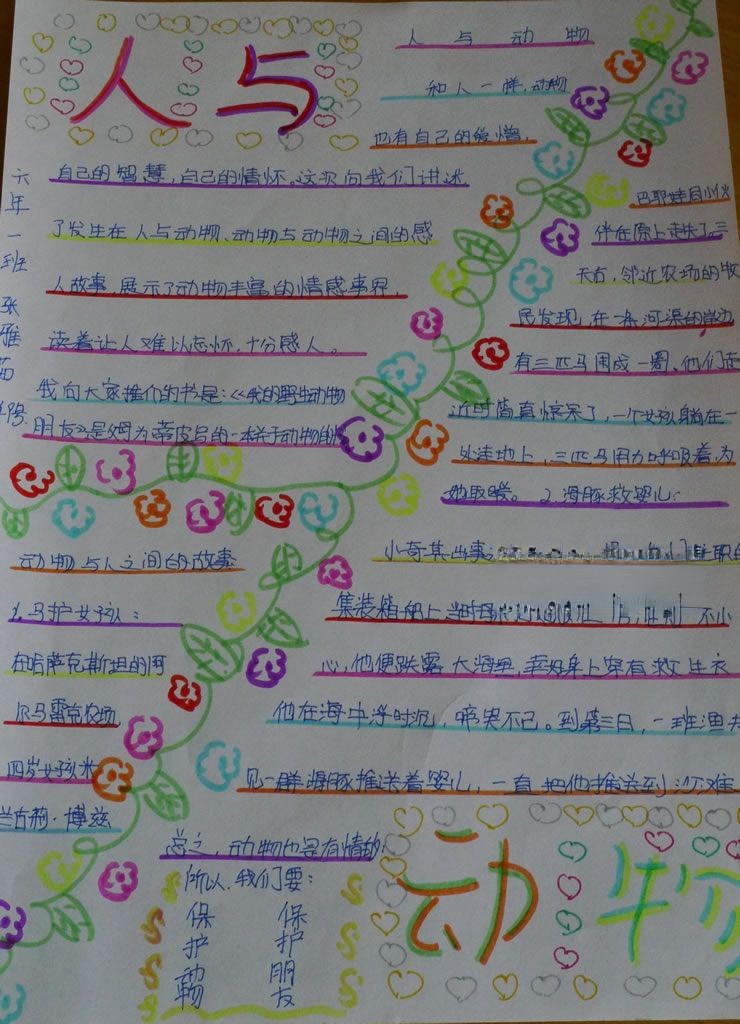 人与
人 与 动 物
和人一样,动物
也有自己的爱憎,
自己的智慧,自己的情怀。这次向我们讲述
了发生在人与动物、动物与动物之间的感
人故事,展示了动物丰富的情感事界,
读着让人难以忘怀,十分感人。
我向大家推介的书是:《我的野生动物
朋友》是姆为蒂皮吕的一本关于动物的
六年一班 张雅
动物与人之间的故事
1.马护女孩:
在哈萨克斯坦的阿
尔马雷克农场
四岁女孩米
兰古丽·博兹
巴耶娃同小伙
伴在原上走失了。三
天后,邻近农场的牧
民发现,在一条河渠的岸边
有三匹马围成一圈、他们走
近时简直惊呆了,一个女孩躺在一
处洼地上,三匹马用力呼吸着,为
她取暖。2.海豚救婴儿:
小奇其出事:
集装箱船上,当时母 不小
心,他便跌露大海里,幸好身上穿有救生衣
他在海中浮时沉,啼哭不已。到第三日,一班渔夫
见一群海豚推送着婴儿,一直把他推送到沙滩
总之,动物也是有情的,
所以,我们要:
保护动物
保护朋友
动物